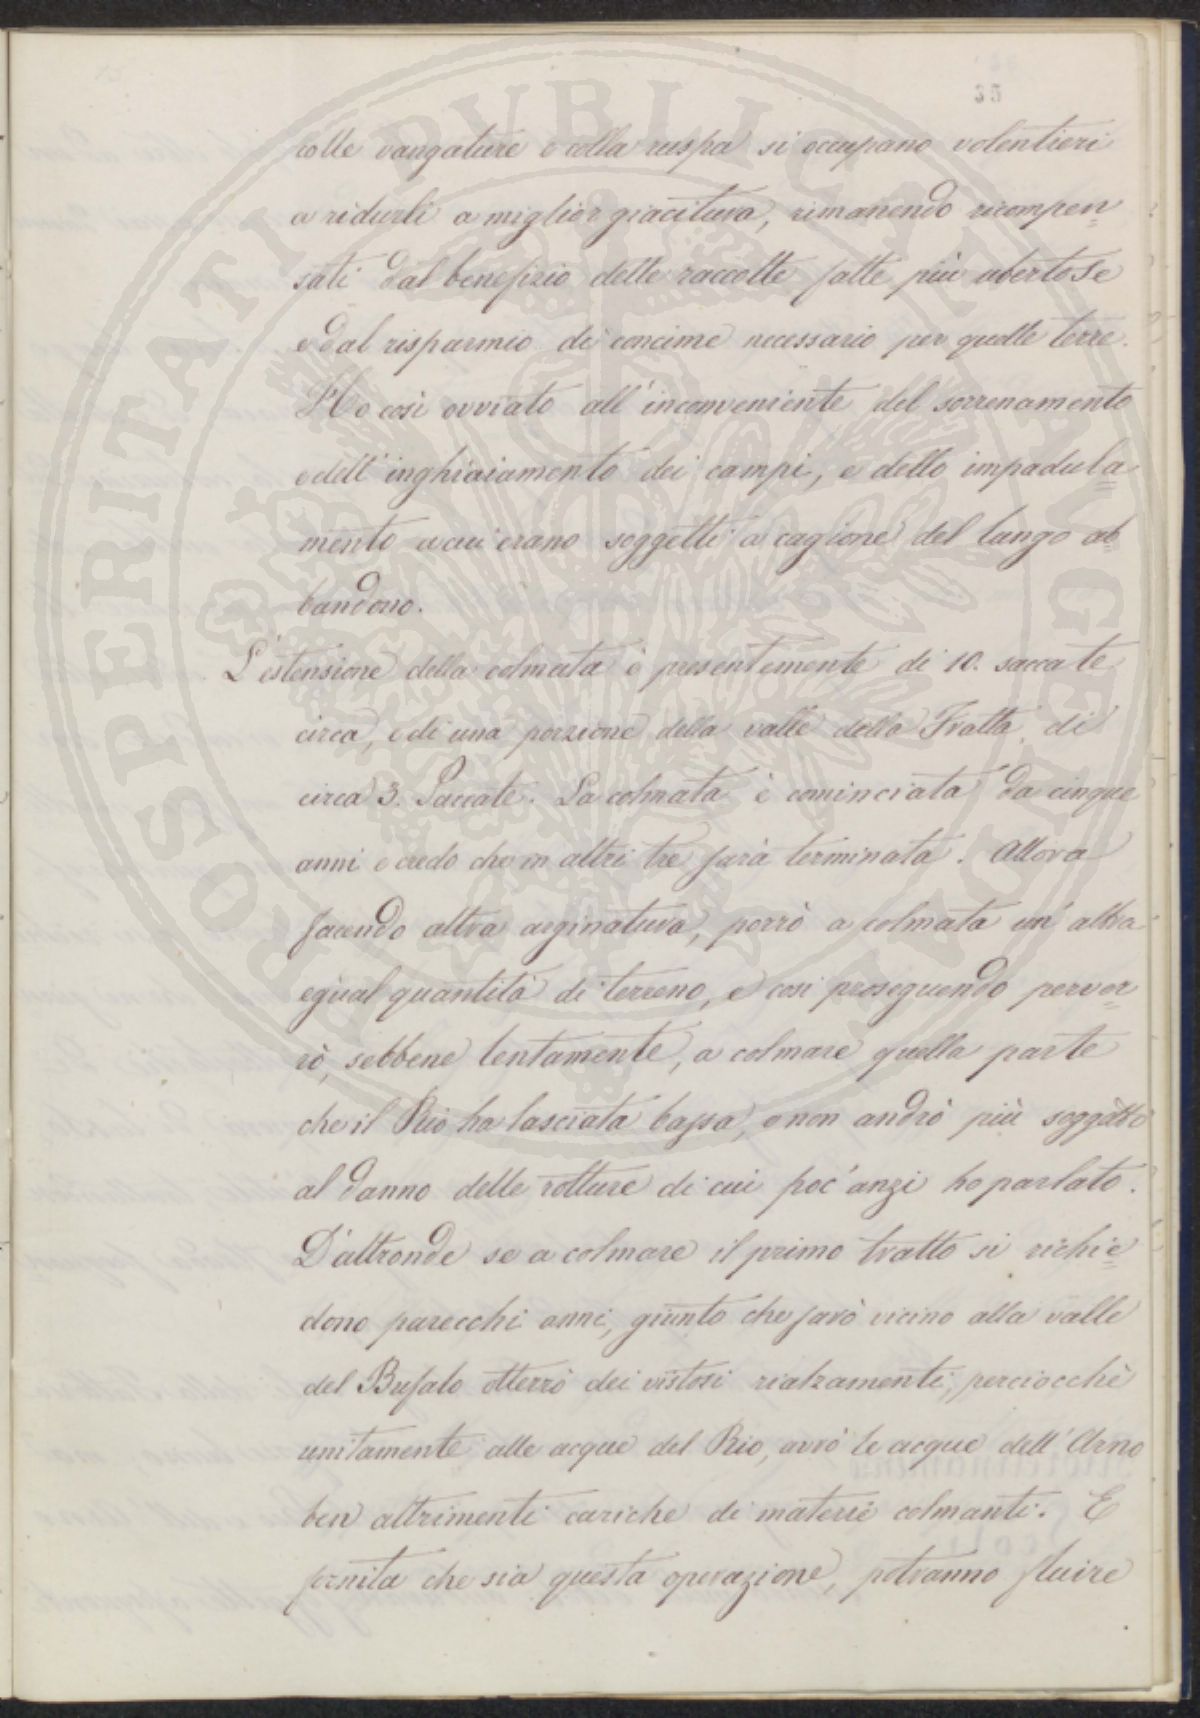 35
colle vangature e colla ruspa si occupano volentieri
a ridurli a miglior giacitura, rimanendo ricompen=
sati dal benefizio delle raccolte fatte più ubertose
e dal risparmio di concime necessario per quelle terre.
Ho così ovviato all'inconveniente del sorrenamento
e dell'inghiaiamento dei campi, e dello impadula=
mento a cui erano soggetti a cagione del lungo ab=
bandono.
L'estensione della colmata è presentemente di 10. saccate
circa, e di una porzione della valle della Fratta, di
circa 3. Saccate. La colmata è cominciata da cinque
anni e credo che in altri tre sarà terminata. Allora
facendo altra arginatura, porrò a colmata un'altra
egual quantità di terreno, e così proseguendo perver=
rò, sebbene lentamente, a colmare quella parte
che il Rio ha lasciata bassa, e non andrò più soggetto
al danno delle rotture di cui poc'anzi ho parlato.
D'altronde se a colmare il primo tratto si richie=
dono parecchi anni, giunto che sarò vicino alla valle
del Bufalo otterrò dei vistosi rialzamenti, perciocchè
unitamente alle acque del Rio, avrò le acque dell'Arno
ben altrimenti cariche di materie colmanti. E
fornita che sia questa operazione, potranno fluire
PROSPERITATI PVBLICAE AVGENDAE